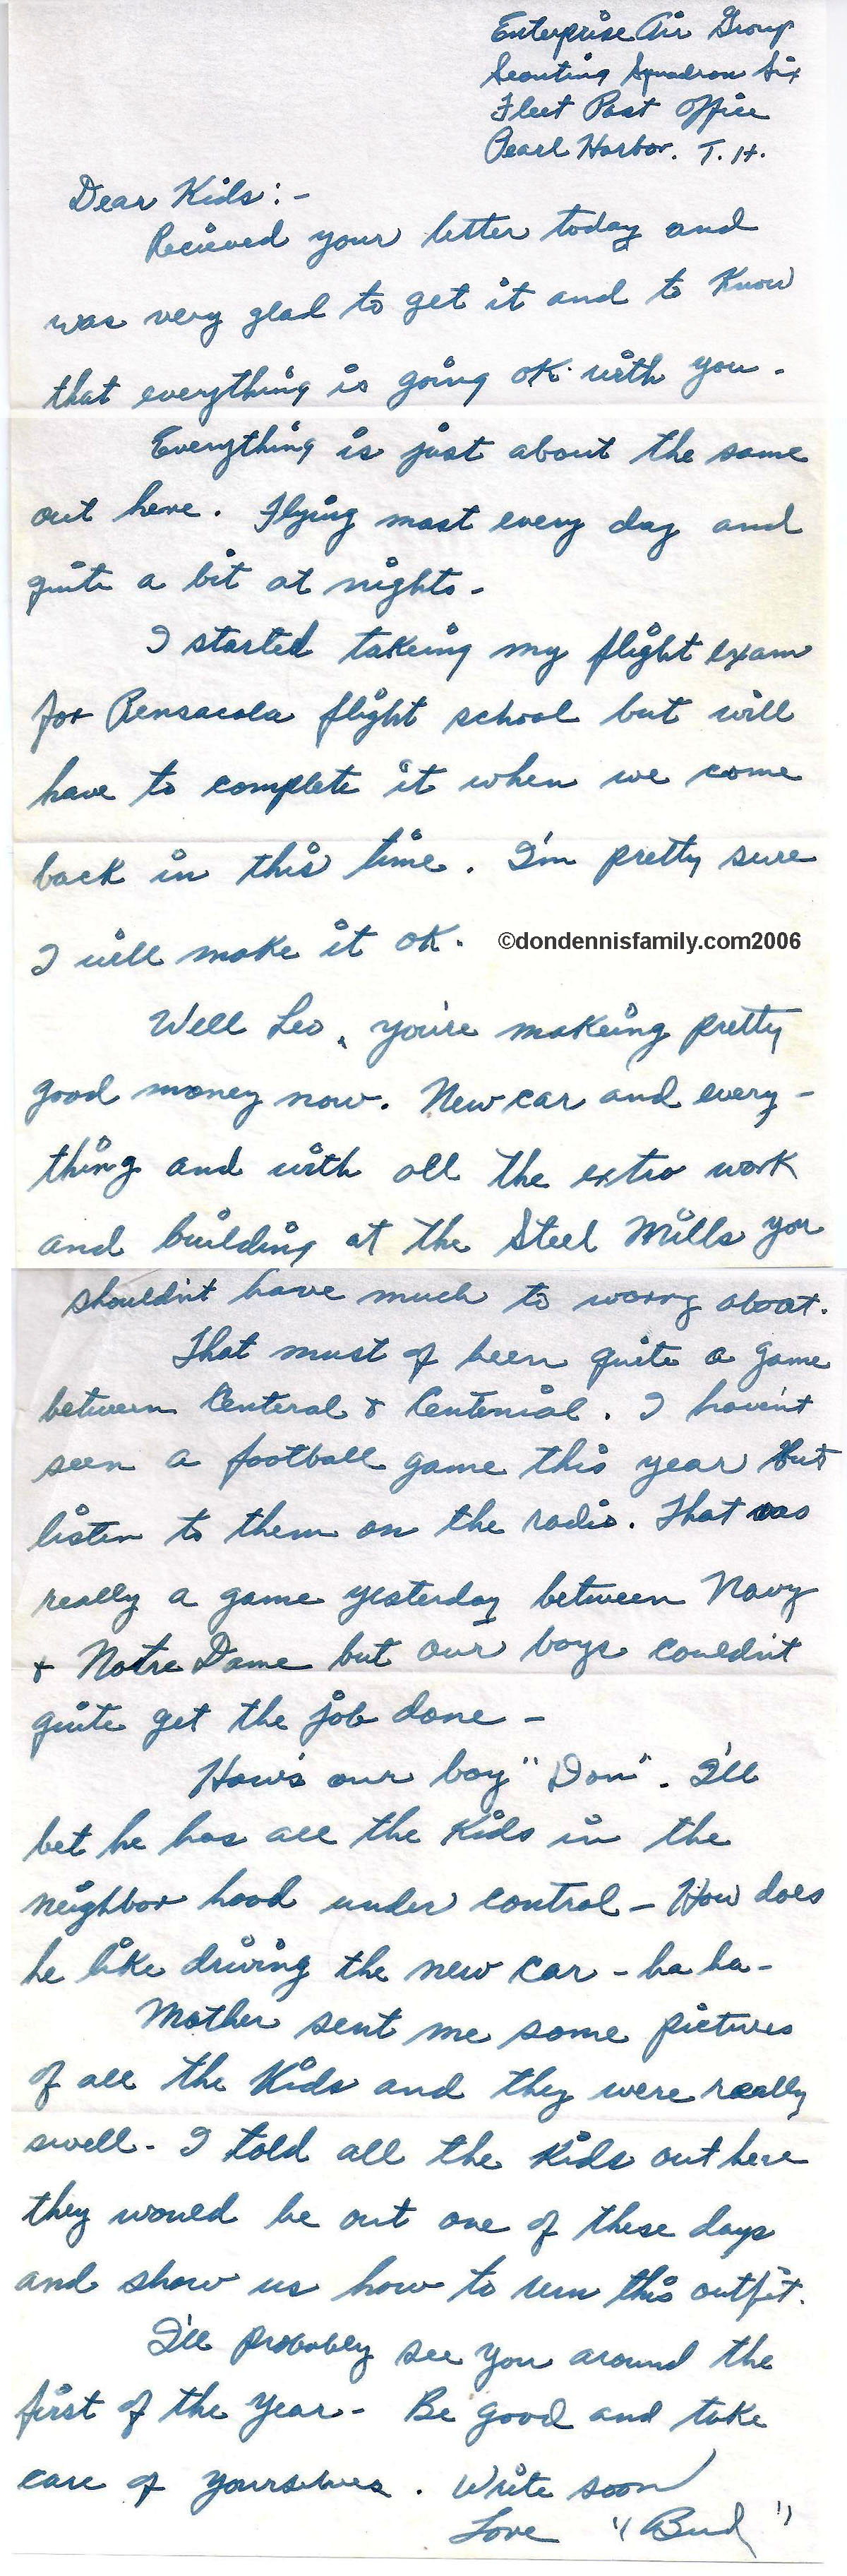 Enterprise Air Group
Scouting Squadron Six
Fleet Post Office
Pearl Harbor. T.H.
Dear Kids:-
Recieved your letter today and
was very glad to get it and to Know
that everything is going OK with you-
Everything is just about the same
out here. Flying most every day and
quite a bit at nights-
I started takeing my flight exam
for Pensacola flight school but will
have to complete it when we come
back in this time. I'm pretty sure
I will make it OK.
©dondennisfamily.com2006
Well Leo, you're makeing pretty
good money now. New car and every-
thing and with all the extra work
and building at the Steel Mills you
shouldn't have much to worry about.
That must of been quite a game
between Centeral & Centenial. I haven't
seen a football game this year but
listen to them on the radio. That was
really a game yesterday between Navy
& Notre Dame but our boys couldn't
quite get the job done-
How's our boy "Don". I'll
bet he has all the Kids in the
neighbor hood under control- How does
he like driving the new car-ha ha-
Mother sent me some pictures
of all the Kids and they were really
swell. I told all the Kids out here
they would be out one of these days
and show us how to run this outfit.
I'll probobly see you around the
first of the year- Be good and take
care of yourselves. Write soon
Love "Bud"